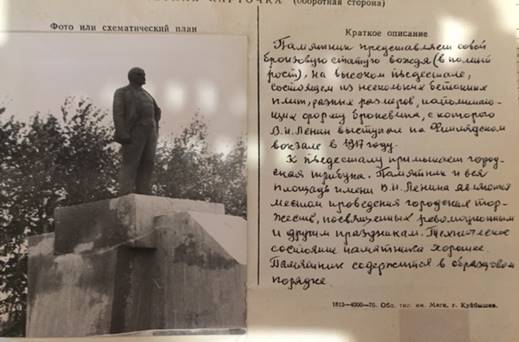 КАРТОЧКА (оборотная сторона)
Фото или схематический план
Краткое описание
Памятник представляет собой
бронзовую статую вождя (в полный
рост), на высоком пьедестале,
состоящем из нескольких бетонных
плит, разных размеров, напоминаю-
щих форму броневика, с которого
В.И. Ленин выступал на Финляндском
вокзале в 1917 году.
К пьедесталу примыкает город-
ская трибуна. Памятник и вся
площадь имени В.И. Ленина являются
местом проведения городских тор-
жеств, посвященных революционным
и другим праздникам. Техническое
состояние памятника хорошее.
Памятник содержится в образцовом
порядке.
1813—4000—70. Обл. тип. им. Мяги, г. Куйбышев.